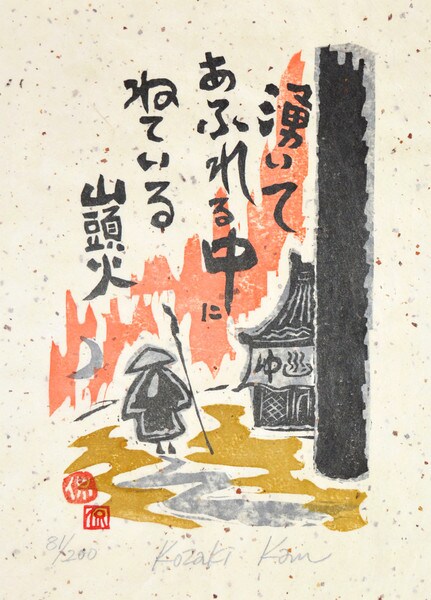 湧いて
あふれる中に
ねている
山頭火
ゆ♨
侃
侃
81/200 Kozaki Kan